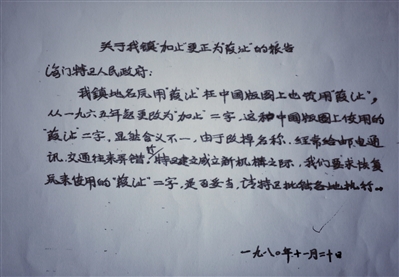 关于我镇"加止"更正为"葭沚"的报告
海门特区人民政府:
我镇地名民用"葭沚"在中国版图上也仍用"葭沚",
从一九六五年起更改为"加止"二字,这种中国版图上使用的
"葭沚"二字,显然含义不一,由于改掉名称,经常给邮电通
讯、交通往来弄错,特区建立成立新机构之际,我们要求恢复
原来使用的"葭沚"二字,是否妥当,请特区批转各地执行。
一九八〇年十一月二十日